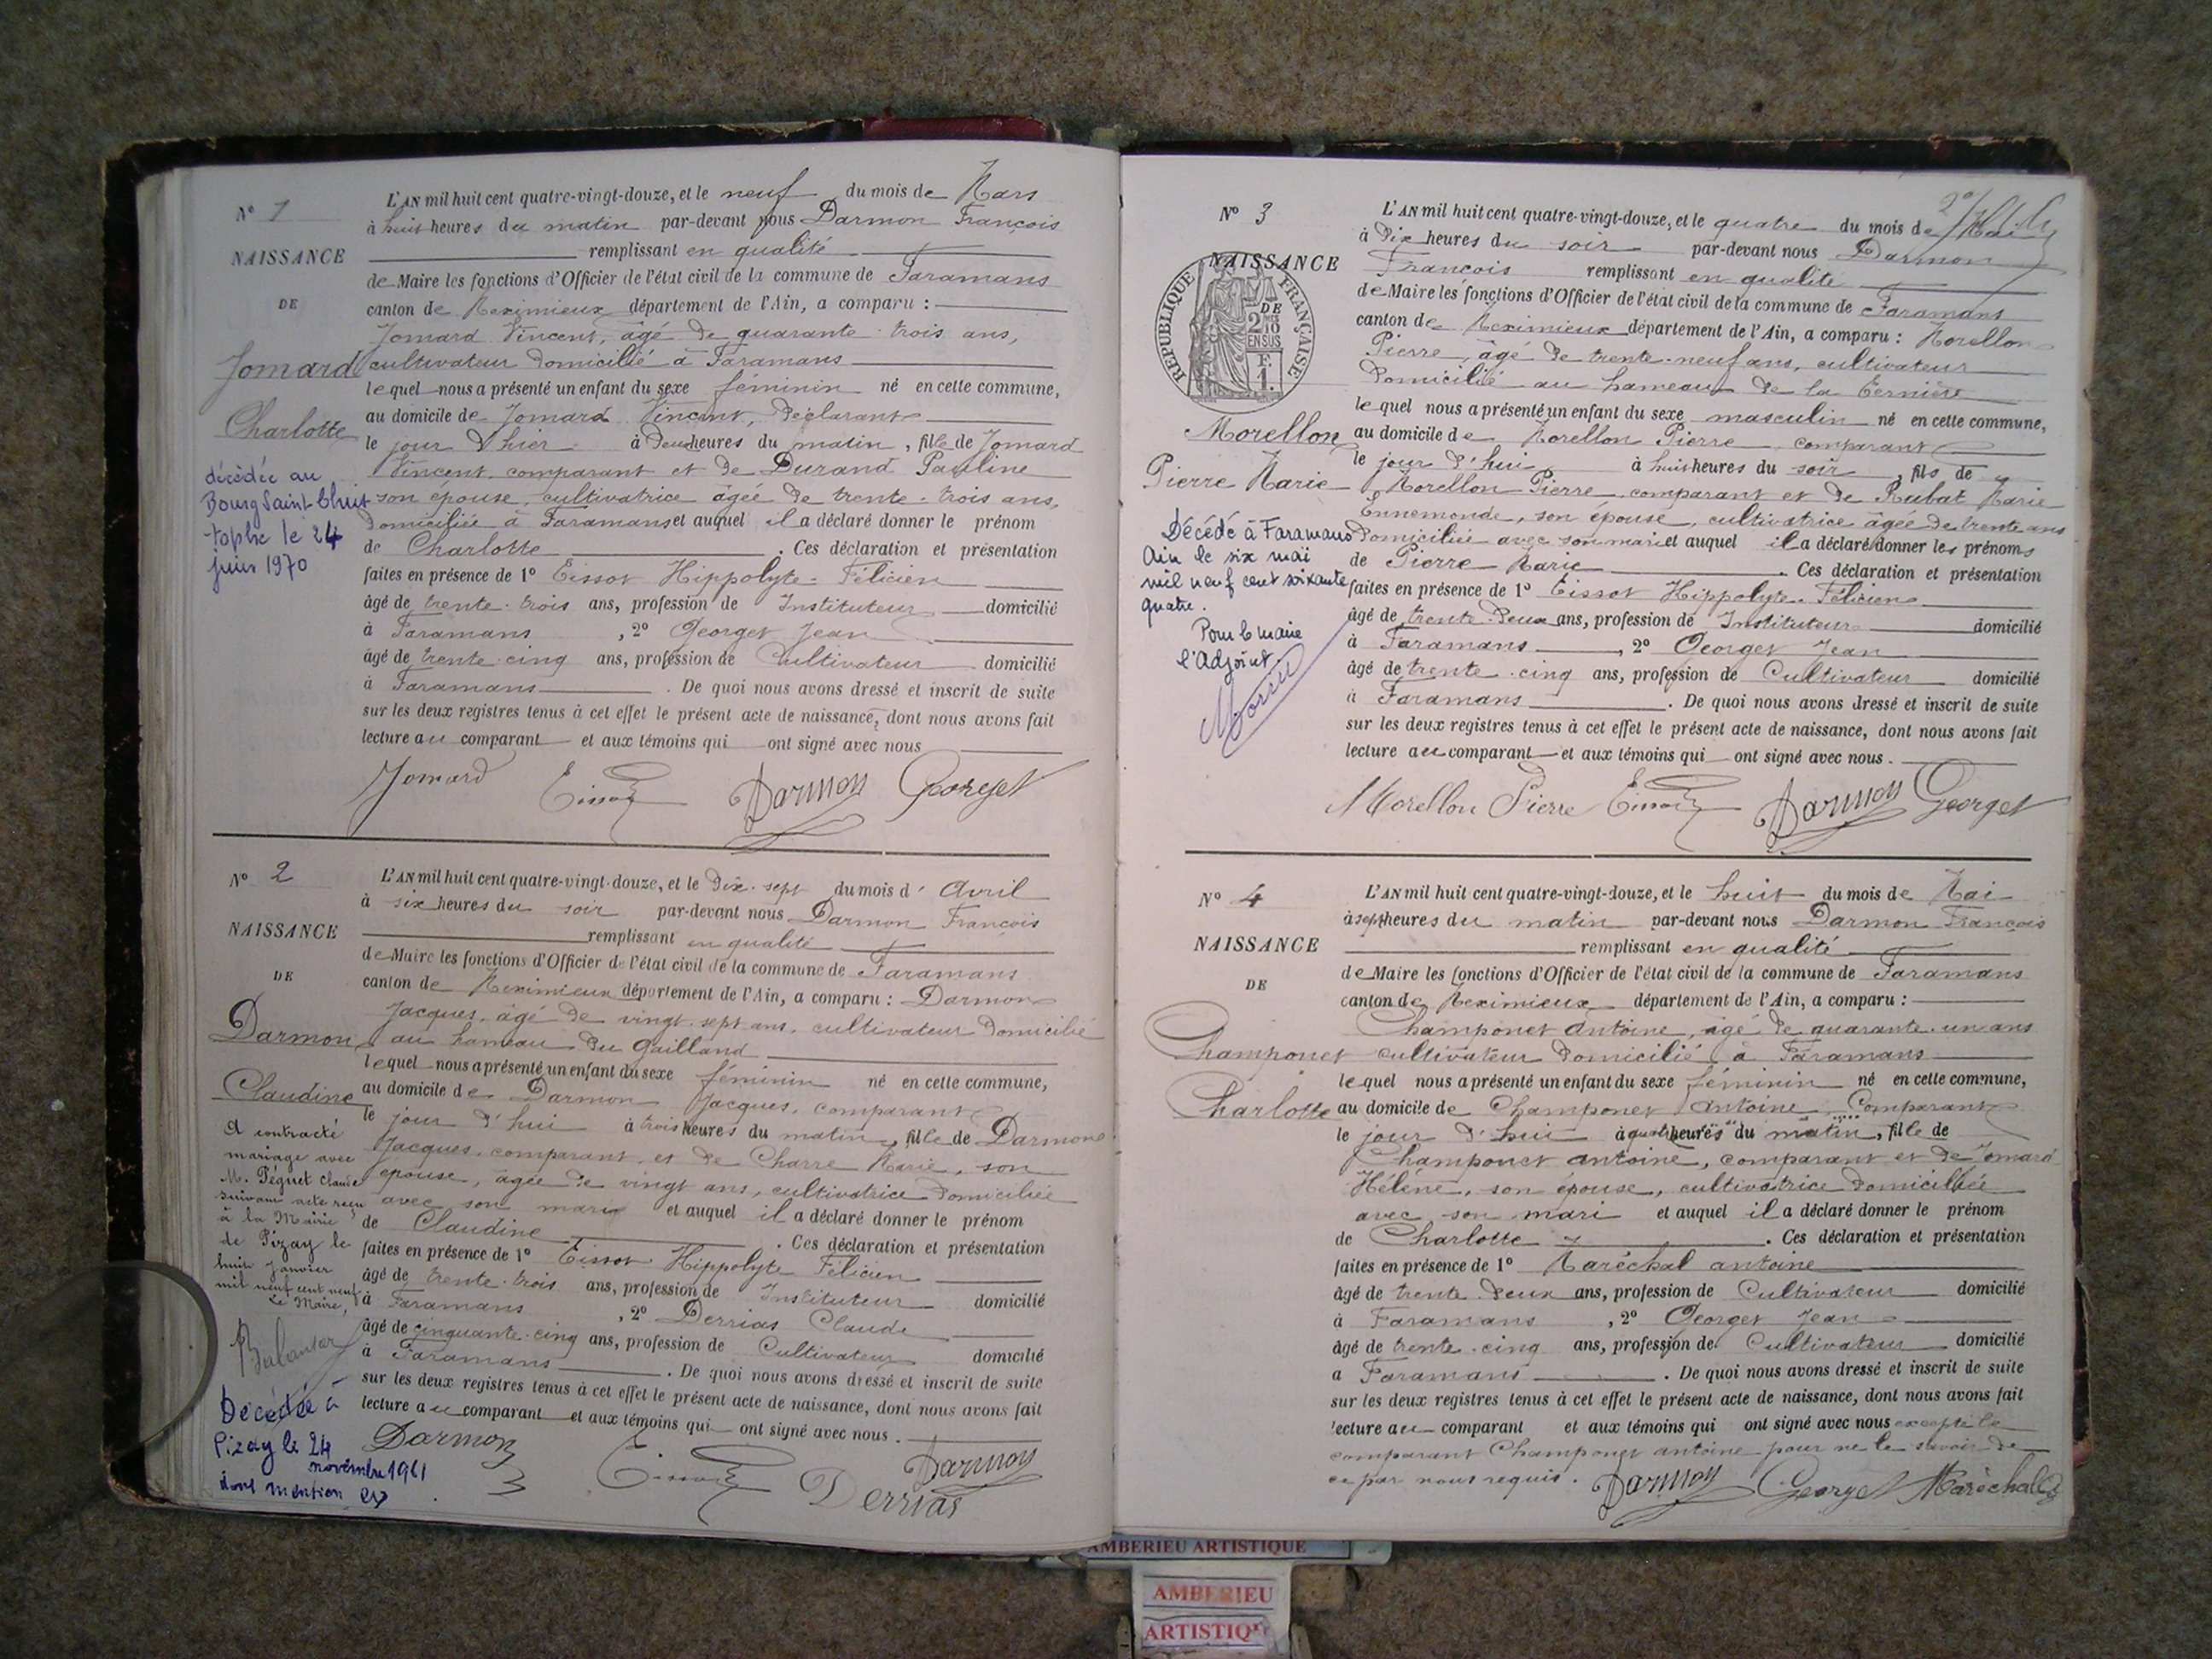 N° 1
NAISSANCE
DE
Jomard
Charlotte
décédée au
Bourg Saint Chris
-tophe le 24
juin 1970
L'AN mil huit cent quatre-vingt-douze, et le neuf du mois de Mars
à huit heures du matin par-devant nous Darmon François
remplissant en qualité
de Maire les fonctions d'Officier de l'état civil de la commune de Faramans
canton de Meximieux département de l'Ain, a comparu :
Jomard Vincent, âgé de quarante-trois ans,
cultivateur domicilié à Faramans
lequel nous a présenté un enfant du sexe féminin né en cette commune,
au domicile de Jomard Vincent, déclarant
le jour d'hier à deux heures du matin, fille de Jomard
Vincent comparant et de Durand Pauline
son épouse, cultivatrice âgée de trente-trois ans,
domiciliée à Faramans et auquel il a déclaré donner le prénom
de Charlotte . Ces déclaration et présentation
faites en présence de 1° Tissot Hippolyte-Félicien
âgé de trente-trois ans, profession de Instituteur domicilié
à Faramans , 2° Georget Jean
âgé de trente-cinq ans, profession de Cultivateur domicilié
à Faramans . De quoi nous avons dressé et inscrit de suite
sur les deux registres tenus à cet effet le présent acte de naissance, dont nous avons fait
lecture au comparant et aux témoins qui ont signé avec nous
Jomard Tissot Darmon Georget
N° 2
NAISSANCE
DE
Darmon
Claudine
A contracté
mariage avec
M. Péguet Claude
suivant acte reçu
à la Mairie
de Pizay le
huit Janvier
mil neuf cent neuf
Le Maire,
Décédée à
Pizay le 24
novembre 1961
dont mention
L'AN mil huit cent quatre-vingt-douze, et le Dix-sept du mois d'Avril
à six heures du soir par-devant nous Darmon François
remplissant en qualité
de Maire les fonctions d'Officier de l'état civil de la commune de Faramans
canton de Meximieux département de l'Ain, a comparu : Darmon
Jacques, âgé de vingt-sept ans, cultivateur domicilié
au hameau du Gailland
lequel nous a présenté un enfant du sexe féminin né en cette commune,
au domicile de Darmon Jacques, comparant
le jour d'hui à trois heures du matin, fille de Darmon
Jacques, comparant et de Charre Marie, son
épouse, âgée de vingt ans, cultivatrice domiciliée
avec son mari et auquel il a déclaré donner le prénom
de Claudine . Ces déclaration et présentation
faites en présence de 1° Tissot Hippolyte Félicien
âgé de trente-trois ans, profession de Instituteur domicilié
à Faramans , 2° Derrias Claude
âgé de cinquante-cinq ans, profession de Cultivateur domicilié
à Faramans . De quoi nous avons dressé et inscrit de suite
sur les deux registres tenus à cet effet le présent acte de naissance, dont nous avons fait
lecture au comparant et aux témoins qui ont signé avec nous .
Darmon Tissot Derrias Darmon
N° 3
NAISSANCE
DE
RÉPUBLIQUE FRANÇAISE
2 DES 10 EN SUS
F. 1.
Morellon
Pierre Marie
Décédé à Faramans
Ain le six mai
mil neuf cent soixante
quatre.
Pour le maire
l'Adjoint
L'AN mil huit cent quatre-vingt-douze, et le quatre du mois de Mai
à dix heures du soir par-devant nous Darmon
François remplissant en qualité
de Maire les fonctions d'Officier de l'état civil de la commune de Faramans
canton de Meximieux département de l'Ain, a comparu : Morellon
Pierre, âgé de trente-neuf ans, cultivateur
domicilié au hameau de la
lequel nous a présenté un enfant du sexe masculin né en cette commune,
au domicile de Morellon Pierre comparant
le jour d'hui à huit heures du soir, fils de
Morellon Pierre comparant et de Rubat Marie
Ennemonde, son épouse, cultivatrice âgée de trente ans
domiciliée avec son mari et auquel il a déclaré donner les prénoms
de Pierre Marie . Ces déclaration et présentation
faites en présence de 1° Tissot Hippolyte-Félicien
âgé de trente-deux ans, profession de Instituteur domicilié
à Faramans , 2° Georget Jean
âgé de trente-cinq ans, profession de Cultivateur domicilié
à Faramans . De quoi nous avons dressé et inscrit de suite
sur les deux registres tenus à cet effet le présent acte de naissance, dont nous avons fait
lecture au comparant et aux témoins qui ont signé avec nous .
Morellon Pierre Tissot Darmon Georget
N° 4
NAISSANCE
DE
Champonet
Charlotte
L'AN mil huit cent quatre-vingt-douze, et le huit du mois de Mai
à sept heures du matin par-devant nous Darmon François
remplissant en qualité
de Maire les fonctions d'Officier de l'état civil de la commune de Faramans
canton de Meximieux département de l'Ain, a comparu :
Champonet Antoine, âgé de quarante-un ans
cultivateur domicilié à Faramans
lequel nous a présenté un enfant du sexe féminin né en cette commune,
au domicile de Champonet Antoine, Comparant
le jour d'hui à quatre heures du matin, fille de
Champonet antoine, comparant et de Jomard
Hélène, son épouse, cultivatrice domiciliée
avec son mari et auquel il a déclaré donner le prénom
de Charlotte . Ces déclaration et présentation
faites en présence de 1° Maréchal antoine
âgé de trente-deux ans, profession de Cultivateur domicilié
à Faramans , 2° Georget Jean
âgé de trente-cinq ans, profession de Cultivateur domicilié
à Faramans . De quoi nous avons dressé et inscrit de suite
sur les deux registres tenus à cet effet le présent acte de naissance, dont nous avons fait
lecture au comparant et aux témoins qui ont signé avec nous excepté le
comparant Champonet antoine pour ne le savoir de
ce par nous requis. Darmon Georget Maréchal
AMBERIEU ARTISTIQUE
AMBERIEU
ARTISTIQU